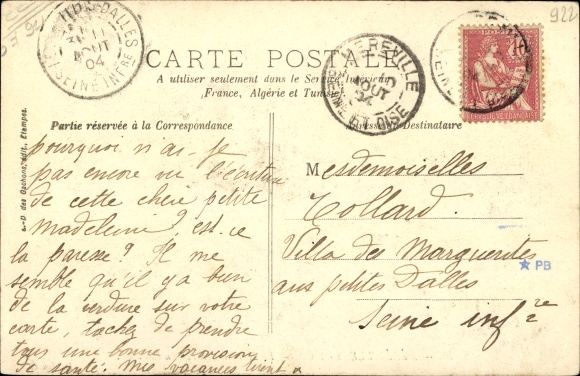 922
CARTE POSTALE
A utiliser seulement dans le Service Intérieur
,France, Algérie et Tunisie,
Partie réservée à la Correspondance
Adresse du Destinataire
MEREVILLE
AOUT
04
SEINE ET OISE
DALLES
11
AOUT
04
SEINE INFRE
10
pourquoi n'ai-je
pas encore vu l'écriture
de cette chère petite
madeleine? est-ce
la paresse? Il me
semble qu'il y a bien
de la verdure sur votre
carte, tachez de prendre
tous une bonne provision
de santé. Mes vacances
Mesdemoiselles
Collard.
Villa des Marguerites
aux petites Dalles
Seine infre
PB
édit., Étampes.